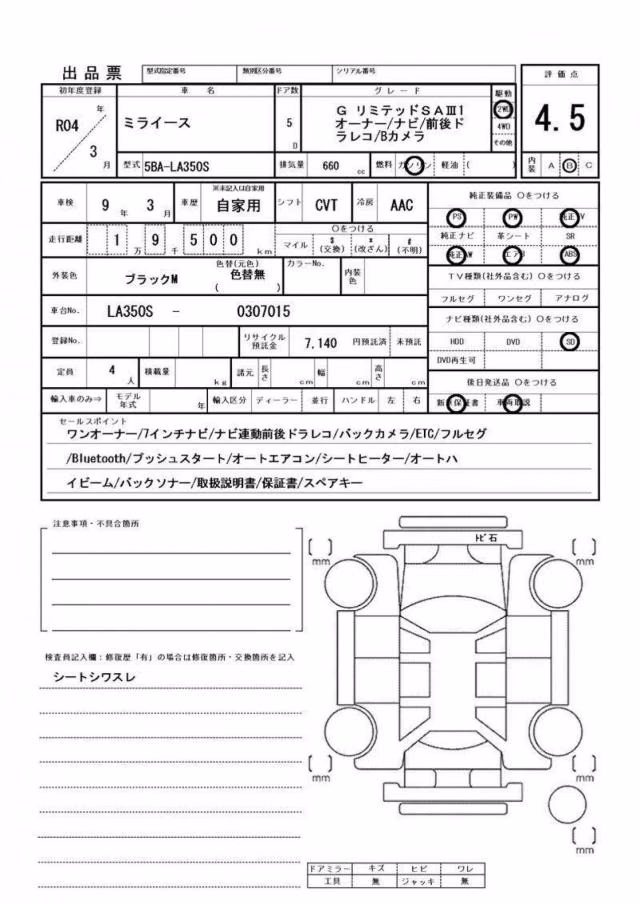 出品票 型式指定番号 類別区分番号 シリアル番号
評価点
初年度登録 車名 ドア数 グレード 駆動
R04 年 / 3 月
ミライース
5 D
G リミテッドSAⅢ1
オーナー/ナビ/前後ド
ラレコ/Bカメラ
2WD
4WD
その他
4.5
型式 5BA-LA350S 排気量 660 cc 燃料 ガソリン 軽油 ( )
内装 A B C
車検 9年 3月 車歴 ※未記入は自家用 自家用 シフト CVT 冷房 AAC
純正装備品 〇をつける
PS PW 純正TV
走行距離 1万 9千 500 km
〇をつける
マイル $(交換) *(改ざん) #(不明)
純正ナビ 革シート SR
純正AW エアB ABS
外装色 ブラックM 色替(元色) 色替無 ( ) カラーNo. 内装色
TV種類(社外品含む) 〇をつける
フルセグ ワンセグ アナログ
車台No. LA350S - 0307015
ナビ種類(社外品含む) 〇をつける
登録No. リサイクル預託金 7,140 円預託済 未預託
HDD DVD SD
DVD再生可
定員 4人 積載量 kg 諸元 長さ cm 幅 cm 高さ cm
後日発送品 〇をつける
輸入車のみ⇒ モデル年式 年 輸入区分 ディーラー 並行 ハンドル 左 右
新車保証書 車両取説
セールスポイント
ワンオーナー/7インチナビ/ナビ連動前後ドラレコ/バックカメラ/ETC/フルセグ
/Bluetooth/プッシュスタート/オートエアコン/シートヒーター/オートハ
イビーム/バックソナー/取扱説明書/保証書/スペアキー
注意事項・不具合箇所
トビ石
mm mm
検査員記入欄:修復歴「有」の場合は修復箇所・交換箇所を記入
シートシワスレ
mm mm
mm
ドアミラー キズ ヒビ ワレ
工具 無 ジャッキ 無